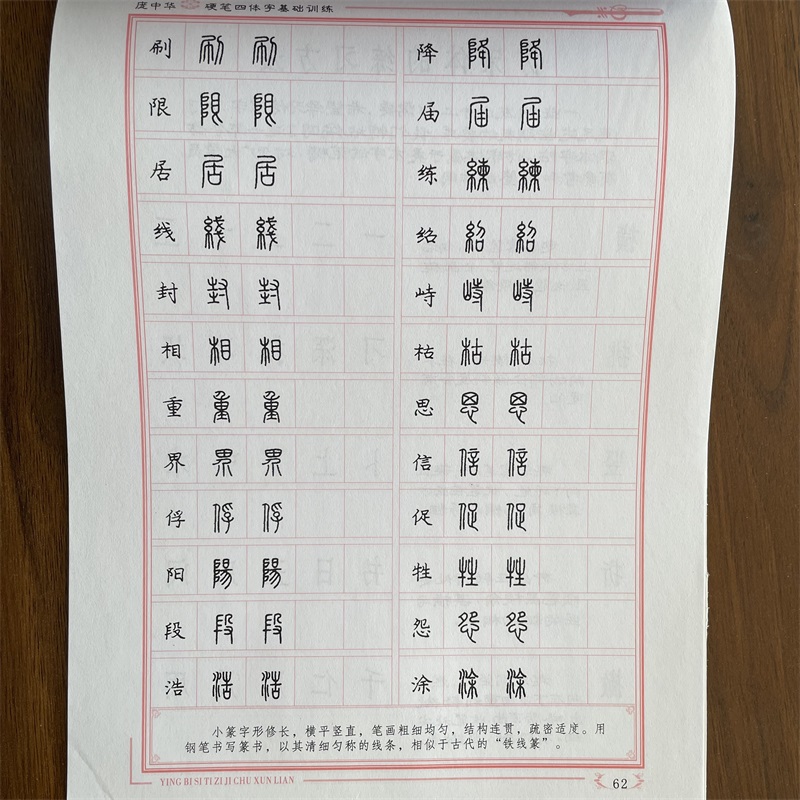 庞中华 硬笔四体字基础训练
刷 刷 刷 降 降 降
限 限 限 届 届 届
居 居 居 练 練 練
线 綫 綫 绍 紹 紹
封 封 封 峙 峙 峙
相 相 相 枯 枯 枯
重 重 重 思 恩 恩
界 界 界 信 信 信
俘 俘 俘 促 促 促
阳 陽 陽 牲 牲 牲
段 段 段 怨 怨 怨
浩 浩 浩 涂 涂 涂
小篆字形修长，横平竖直，笔画粗细均匀，结构连贯，疏密适度。用
钢笔书写篆书，以其清细匀称的线条，相似于古代的“铁线篆”。
YING BI SI TI ZI JI CHU XUN LIAN
62